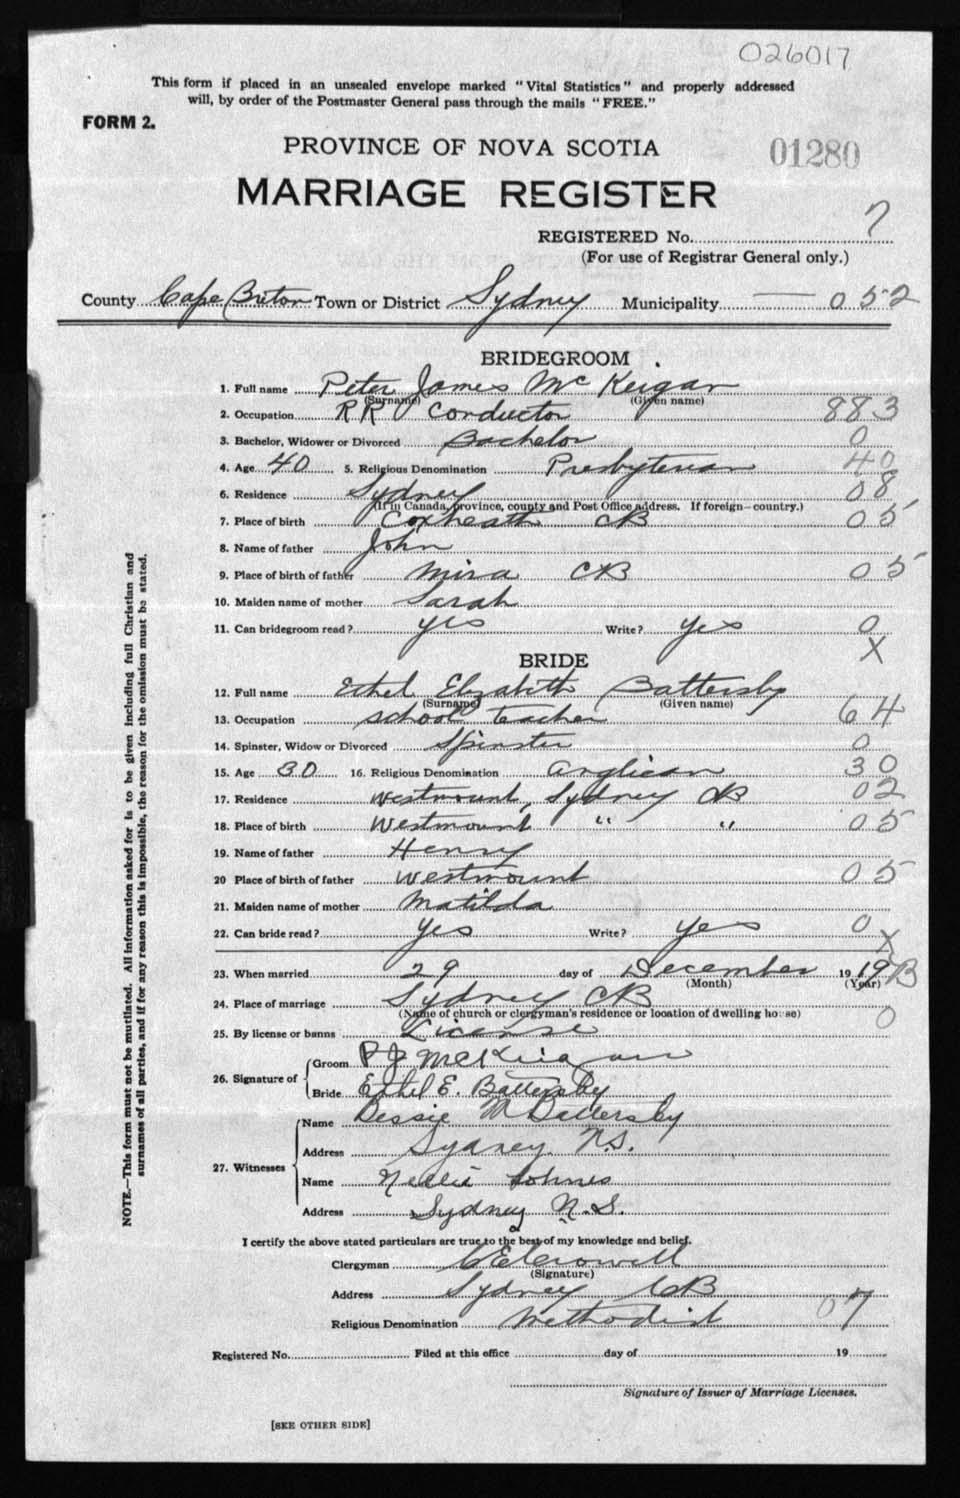 026017
This form if placed in an unsealed envelope marked "Vital Statistics" and properly addressed
will, by order of the Postmaster General pass through the mails "FREE."
FORM 2.
PROVINCE OF NOVA SCOTIA
01280
MARRIAGE REGISTER
REGISTERED No. 7
(For use of Registrar General only.)
County Cape Breton Town or District Sydney Municipality — 052
BRIDEGROOM
1. Full name Peter James McKeigan
(Surname) (Given name)
2. Occupation RR Conductor 883
3. Bachelor, Widower or Divorced Bachelor 0
4. Age 40 5. Religious Denomination Presbyterian 40
6. Residence Sydney 08
(If in Canada, province, county and Post Office address. If foreign—country.)
7. Place of birth Coxheath CB 05
8. Name of father John
9. Place of birth of father Mira CB 05
10. Maiden name of mother Sarah
11. Can bridegroom read? yes Write? yes 0
X
BRIDE
12. Full name Ethel Elizabeth Battersby
(Surname) (Given name)
13. Occupation school teacher 64
14. Spinster, Widow or Divorced Spinster 0
15. Age 30 16. Religious Denomination Anglican 30
17. Residence Westmount, Sydney CB 02
18. Place of birth Westmount " " 05
19. Name of father Henry
20 Place of birth of father Westmount 05
21. Maiden name of mother Matilda
22. Can bride read? Yes Write? Yes 0
X
23. When married 29 day of December 1919 B
(Month) (Year)
24. Place of marriage Sydney CB
(Name of church or clergyman's residence or location of dwelling house) 0
25. By license or banns License
26. Signature of Groom P J McKeigan
Bride Ethel E. Battersby
27. Witnesses Name Bessie M Battersby
Address Sydney N.S.
Name Nellie
Address Sydney N.S.
I certify the above stated particulars are true to the best of my knowledge and belief.
Clergyman C E Crowell
(Signature)
Address Sydney CB
Religious Denomination Methodist 07
Registered No. Filed at this office day of 19
Signature of Issuer of Marriage Licenses.
[SEE OTHER SIDE]
NOTE.—This form must not be mutilated. All information asked for is to be given including full Christian and
surnames of all parties, and if for any reason this is impossible, the reason for the omission must be stated.